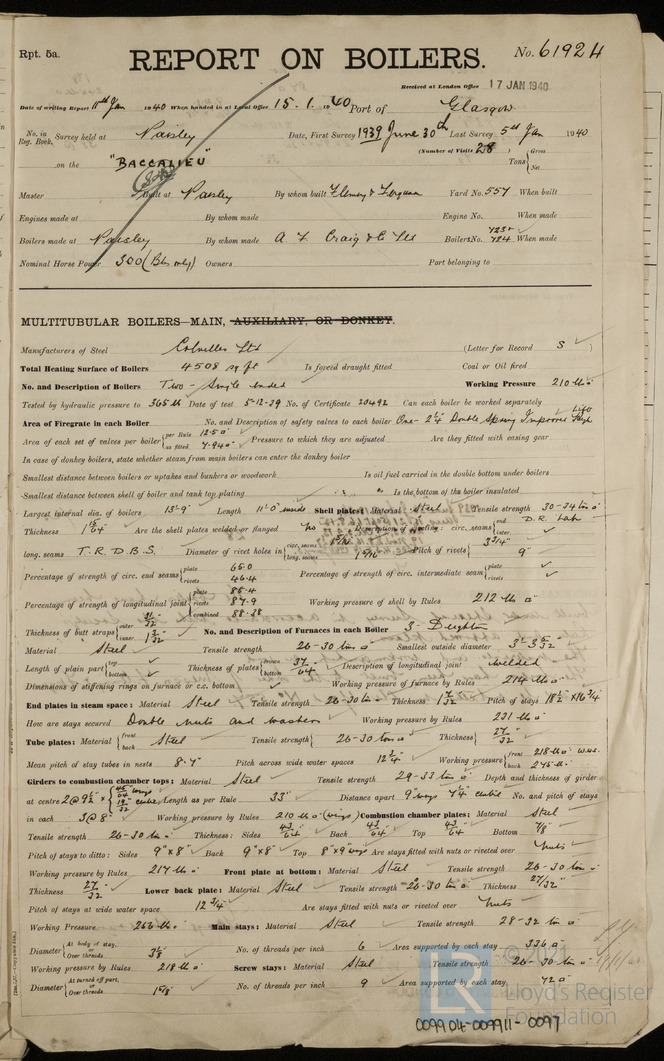 Rpt. 5a.
REPORT ON BOILERS.
No. 61924
Received at London Office 17 JAN 1940
Date of writing Report 11th Jan 1940 When handed in at Local Office 15.1.1940 Port of Glasgow
No. in Reg. Book. Survey held at Paisley Date, First Survey 1939 June 30th Last Survey 5th Jan 1940
(Number of Visits 28) Gross Tons Net
on the "BACCALIEU"
Master Built at Paisley By whom built Fleming & Ferguson Yard No. 557 When built
Engines made at By whom made Engine No. When made
Boilers made at Paisley By whom made A. F. Craig & Co Ltd Boilers No. 723 724 When made
Nominal Horse Power 300 (Blrs only) Owners Port belonging to
MULTITUBULAR BOILERS—MAIN, AUXILIARY, OR DONKEY.
Manufacturers of Steel Colvilles Ltd (Letter for Record S)
Total Heating Surface of Boilers 4508 sq ft Is forced draught fitted Coal or Oil fired
No. and Description of Boilers Two - Single ended Working Pressure 210 lbs
Tested by hydraulic pressure to 365 lb Date of test 5-12-39 No. of Certificate 20492 Can each boiler be worked separately
Area of Firegrate in each Boiler No. and Description of safety valves to each boiler One - 2¼ Double Spring Improved High Lift
Area of each set of valves per boiler per Rule as fitted 7.940 Pressure to which they are adjusted Are they fitted with easing gear
In case of donkey boilers, state whether steam from main boilers can enter the donkey boiler
Smallest distance between boilers or uptakes and bunkers or woodwork Is oil fuel carried in the double bottom under boilers
Smallest distance between shell of boiler and tank top plating Is the bottom of the boiler insulated
Largest internal dia. of boilers 13'-9" Length 11'-0" inside Shell plates: Material Steel Tensile strength 30-34 tons
Thickness Are the shell plates welded or flanged No Description of riveting: circ. seams end D.R. Lap inter.
long. seams T.R.D.B.S. Diameter of rivet holes in circ. seams long. seams 1 5/16 Pitch of rivets 3¾" 9"
Percentage of strength of circ. end seams plate 65.0 rivets 46.4 Percentage of strength of circ. intermediate seam plate rivets
Percentage of strength of longitudinal joint plate 85.4 rivets 87.9 combined 88.38 Working pressure of shell by Rules 212 lbs
Thickness of butt straps outer inner No. and Description of Furnaces in each Boiler 3 - Deighton
Material Steel Tensile strength 26-30 tons Smallest outside diameter
Length of plain part top bottom Thickness of plates crown bottom 37/64 Description of longitudinal joint Welded
Dimensions of stiffening rings on furnace or c.c. bottom Working pressure of furnace by Rules 214 lbs
End plates in steam space: Material Steel Tensile strength 26-30 tons Thickness Pitch of stays 18½" x 16¾"
How are stays secured Double nuts and washers Working pressure by Rules 231 lbs
Tube plates: Material front back Steel Tensile strength 26-30 tons Thickness 27/32
Mean pitch of stay tubes in nests 8.7" Pitch across wide water spaces Working pressure front 218 lbs w.w.s. back 275 lbs
Girders to combustion chamber tops: Material Steel Tensile strength 29-33 tons Depth and thickness of girder
at centre 2 @ 9½" x Length as per Rule 33" Distance apart 9" wings 7¼" centre No. and pitch of stays
in each 3 @ 8" Working pressure by Rules 210 lbs (wings) Combustion chamber plates: Material Steel
Tensile strength 26-30 tons Thickness: Sides 43/64 Back 43/64 Top 43/64 Bottom 7/8
Pitch of stays to ditto: Sides 9" x 8" Back 9" x 8" Top 8" x 9" wings Are stays fitted with nuts or riveted over Nuts
Working pressure by Rules 217 lbs Front plate at bottom: Material Steel Tensile strength 26-30 tons
Thickness 27/32 Lower back plate: Material Steel Tensile strength 26-30 tons Thickness 27/32"
Pitch of stays at wide water space 12¾" Are stays fitted with nuts or riveted over Nuts
Working Pressure 266 lbs Main stays: Material Steel Tensile strength 28-32 tons
Diameter At body of stay, or Over threads 3⅛ No. of threads per inch 6 Area supported by each stay 336
Working pressure by Rules 218 lbs Screw stays: Material Steel Tensile strength 26-30 tons
Diameter At turned off part, or Over threads 1⅝ No. of threads per inch 9 Area supported by each stay 72
© 2021
LR
Lloyd's Register
Foundation
009904-009911-0097